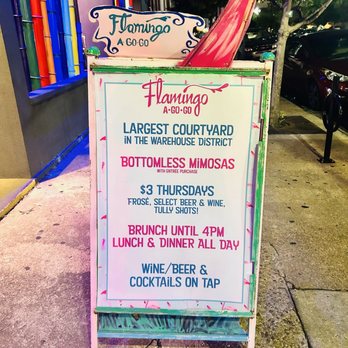 Flamingo
A·GO·GO
Flamingo
A·GO·GO
LARGEST COURTYARD
IN THE WAREHOUSE DISTRICT
BOTTOMLESS MIMOSAS
WITH ENTRÉE PURCHASE
$3 THURSDAYS
FROSÉ, SELECT BEER & WINE,
TULLY SHOTS!
BRUNCH UNTIL 4PM
LUNCH & DINNER ALL DAY
WINE/BEER &
COCKTAILS ON TAP